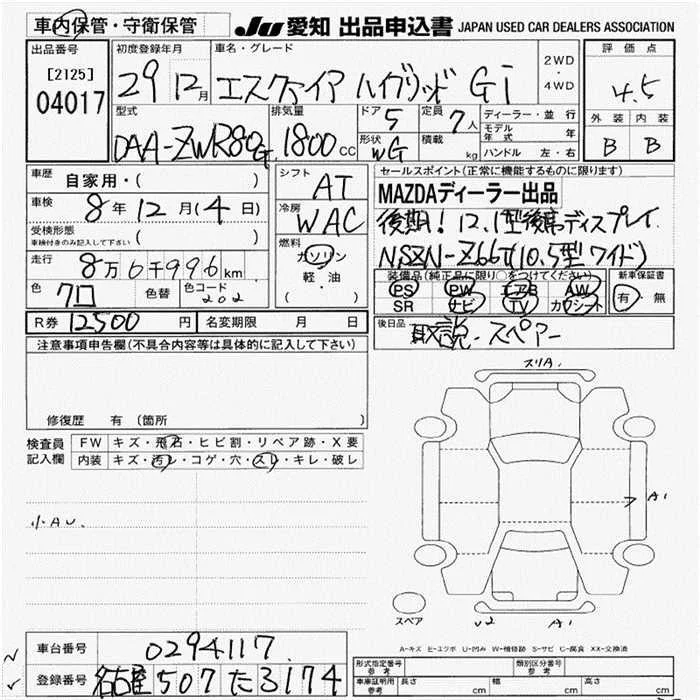 車内保管・守衛保管
JU 愛知 出品申込書 JAPAN USED CAR DEALERS ASSOCIATION
出品番号
[2125]
04017
初度登録年月
29年12月
車名・グレード
エスクァイア ハイブリッド Gi
2WD
・
4WD
評価点
4.5
外装 内装
B B
型式
DAA-ZWR80G
排気量
1800 CC
ドア 5
形状 WG
定員 7人
積載 kg
ディーラー・並行
モデル年式 年
ハンドル 左・右
車歴 自家用・( )
車検 8年12月(4日)
受検形態
車検付きのみ記入して下さい ( )
走行 8万6千996km
色 クロ 色替 色コード 202
シフト AT
冷房 WAC
燃料 ガソリン
・軽・油
( )
セールスポイント(正常に機能するものに限ります)
MAZDAディーラー出品
後期! 12.1型後席ディスプレイ.
NSZN-Z66T(10.5型ワイド)
装備品(純正品に限り○をつけてください)
PS PW エアB AW
SR ナビ TV カワシート
新車保証書
有・無
R券 12500円 名変期限 月 日
後日品 取説・スペアー
注意事項申告欄(不具合内容等は具体的に記入して下さい)
修復歴 有(箇所 )
検査員記入欄
FW キズ・飛石・ヒビ割・リペア跡・X要
内装 キズ・汚レ・コゲ・穴・スレ・キレ・破レ
小AU.
スリA.
A1
スペア
U2 A1
A-キズ E-エクボ U-凹み W-補修跡 S-サビ C-腐食 XX-交換済
車台番号 0294117
登録番号 名古屋 507 た 3174
形式指定番号 参考
類別区分番号 参考
車庫証明用 参考 長さ cm 幅 cm 高さ cm